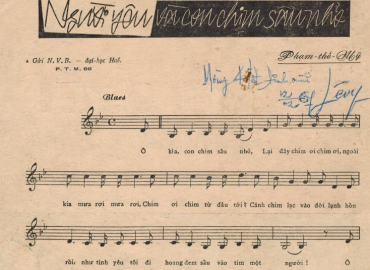 Người yêu và con chim sâu nhỏ
Gửi N. V. B. — đại-học Huế.
P. T. M. 66
Phạm-thế-Mỹ
Blues
Ô kìa, con chim sâu nhỏ, Lại đây chim ơi chim ơi, ngoài
kia mưa rơi mưa rơi, Chim ơi chim từ đâu tới? Cánh chim lạc vào đời lạnh hồn
rồi, như tình yêu tôi đi hoang đem sầu vào tim một người! Ô